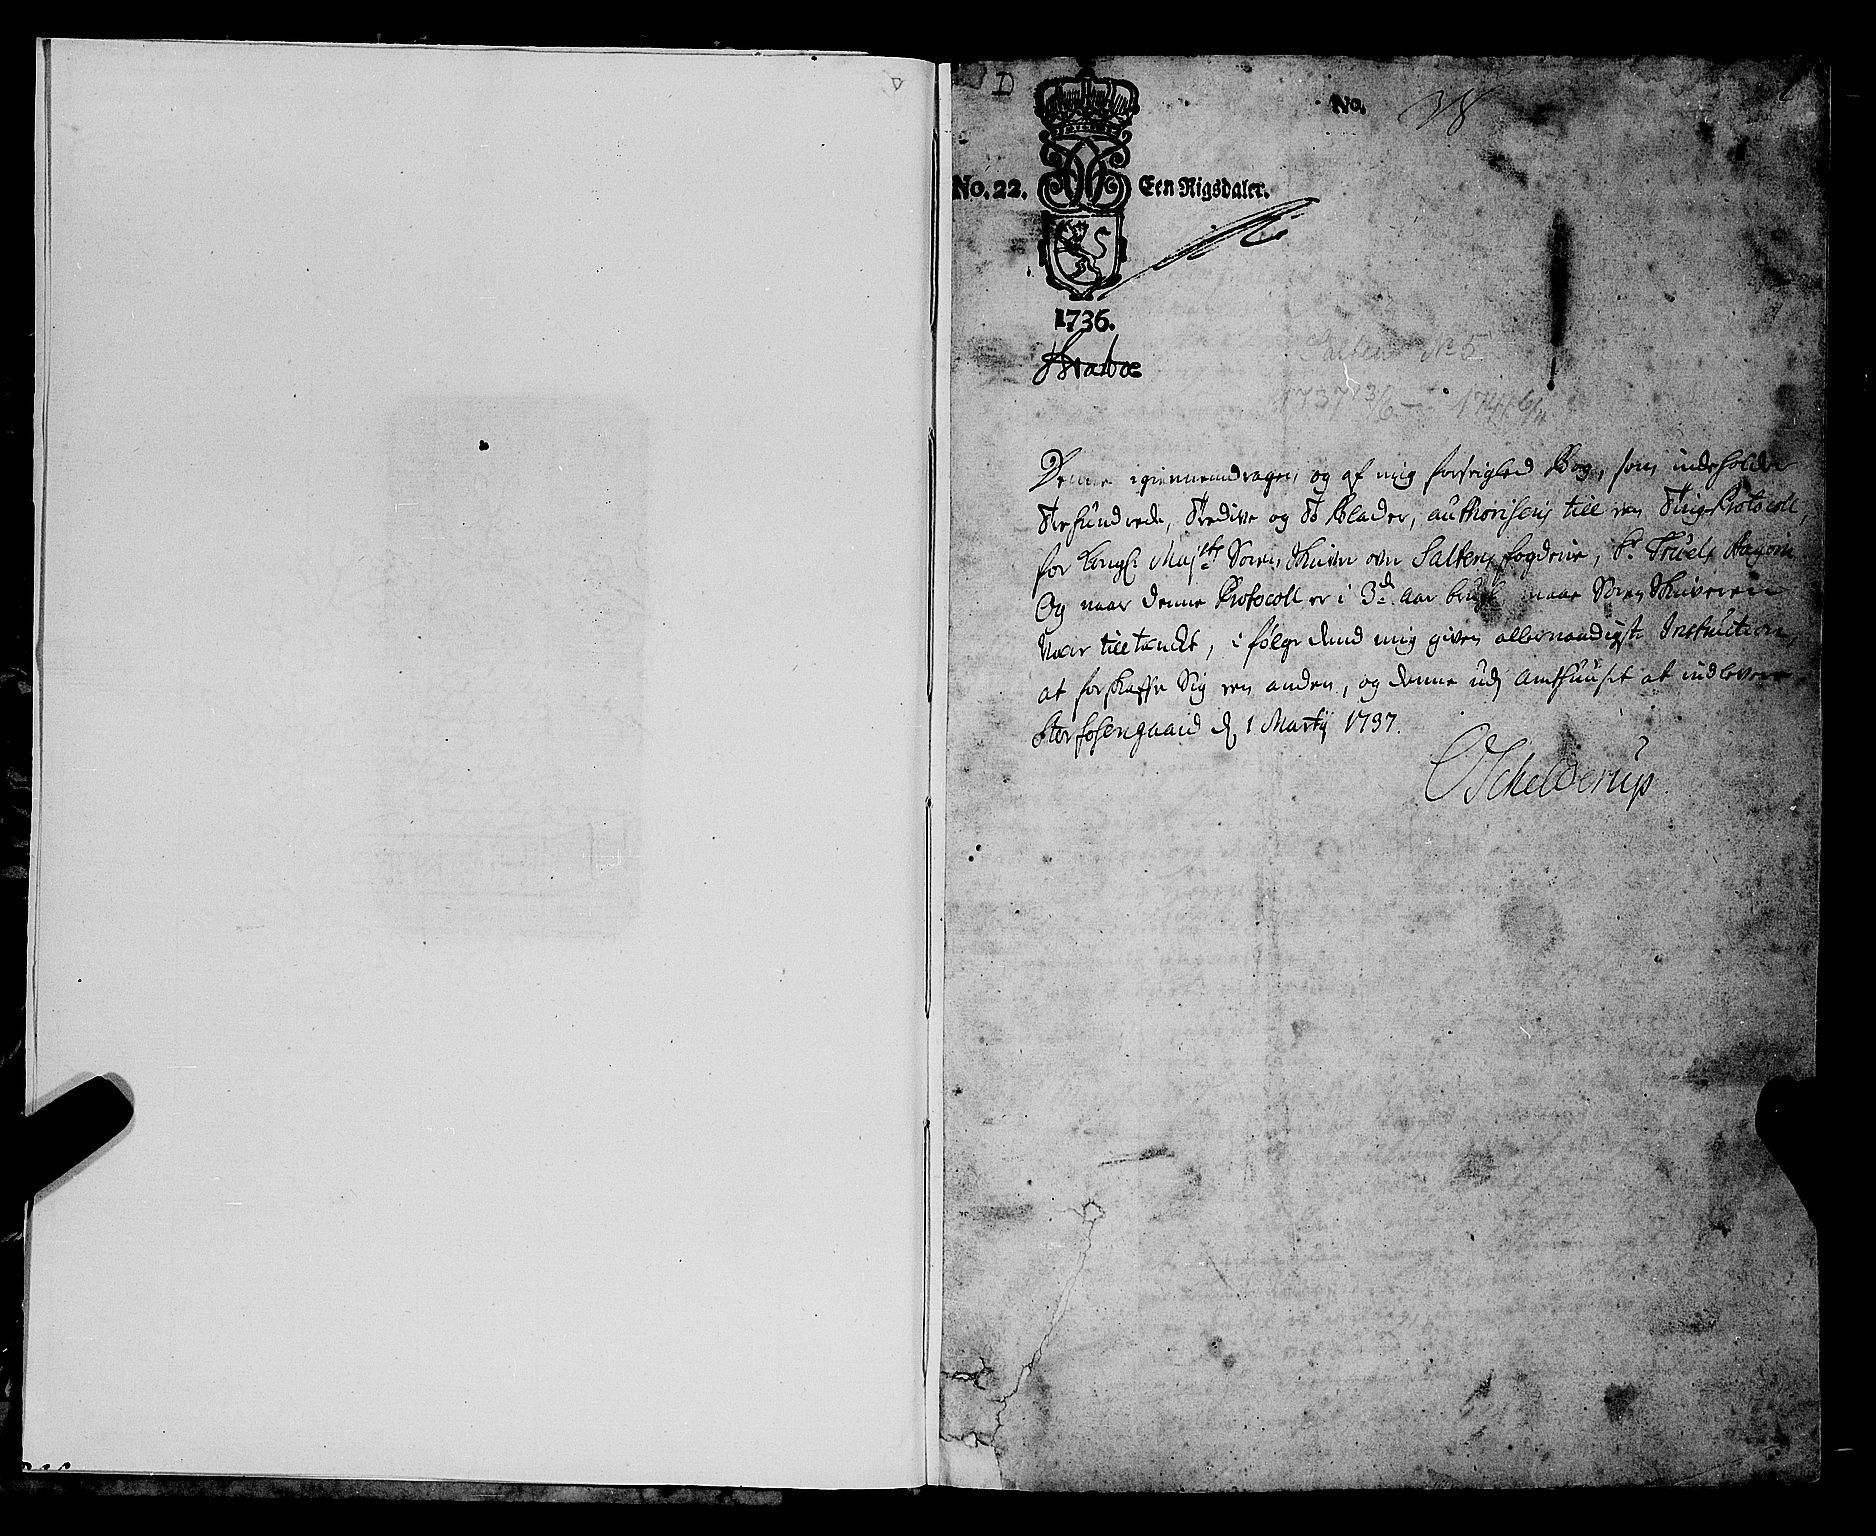 D
No. 38
No. 22. Een Rigsdaler.
1736.
Salten No 5
1737 13/6 — 1741 6/
Denne igiennemdragen og af mig forseigled Bog, som indeholder
Trehundrede, Tredive og To Blader, authoriseris till een Ting-Protocoll,
for Kongl: Maj:ts Sorenskriver over Saltens fogderie, Sr Truels Hagerup
Og naar denne Protocoll er i 3de Aar brugt maae Sorenskriveren
være tilltænckt, i følge dend mig given allernaadigste Instruction,
at forskaffe sig een anden, og denne udj Amthuuset at indlevere
Storfosengaard d 1 Martij 1737.
O Schelderup